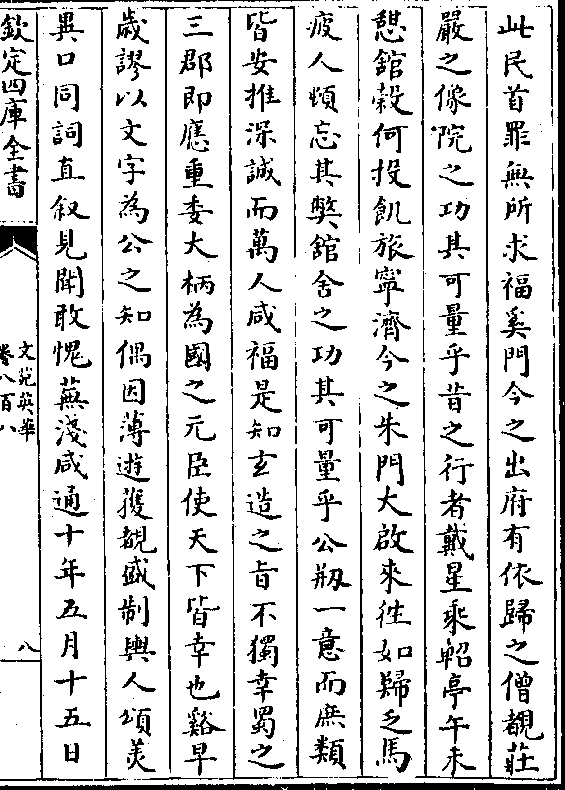 此民首罪無所求福奚門今之出府有依歸之僧覩莊
嚴之像院之功其可量乎昔之行者戴星乘軺亭午未
憇館穀何投飢旅寧濟今之朱門大啟來徃如歸乏馬
疲人頓忘其獘舘舍之功其可量乎公剏一意而庶類
皆安推深誠而萬人咸福是知玄造之旨不獨幸蜀之
三郡即應重委大柄為國之元臣使天下皆幸也谿早
歲謬以文字為公之知偶因薄遊獲覩盛制輿人頌美
異口同詞直叙見聞敢愧蕪淺咸通十年五月十五日
欽定四庫全書
文苑英華
卷八百八
八